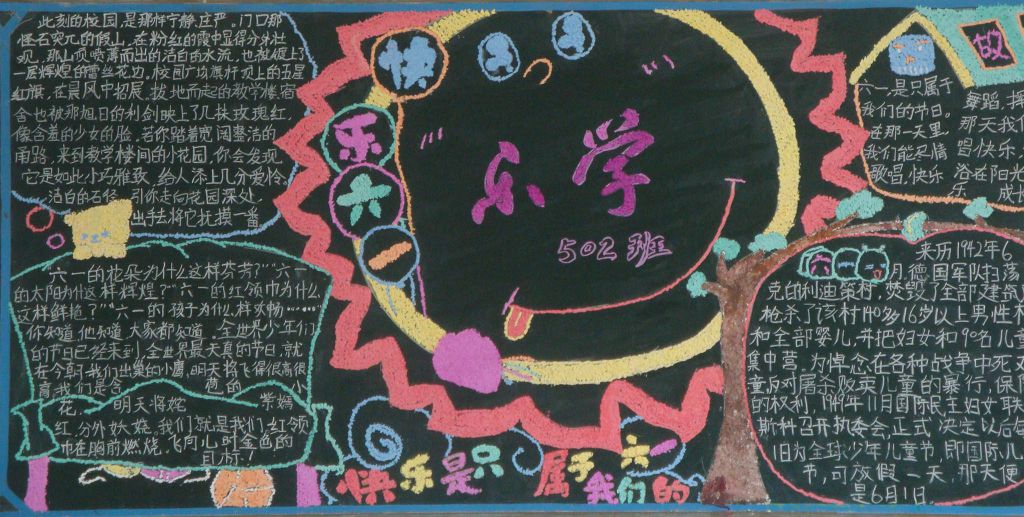 此刻的校园,是那样宁静,庄严。门口那
怪石突兀的假山,在粉红的霞中显得分外壮
观,那山顶喷薄而出的洁白的水流,也被镀上了
一层辉煌的蕾丝花边,校园广场旗杆顶上的五星
红旗,在晨风中招展。拔地而起的教学楼宿
舍也被那旭日的利剑映上了几抹玫瑰红,
像含羞的少女的脸。若你踏着宽阔整洁的
甬路,来到教学楼间的小花园,你会发现,
它是如此小巧雅致,给人添上几分爱怜。
洁白的石径 引你走向花园深处,
出手去将它抚摸一番
六一的花朵为什么这样芬芳?"六一
的太阳为什这样辉煌?"六一的红领巾为什么
这样鲜艳?"六一的孩子为什么样欢畅……
你知道他知道,大家都知道。全世界少年们
的节日已经来到,全世界最天真的节日,就
在今朝我们出巢的小鹰,明天将飞得很高很
育我们是含 苞的 小
花, 明天将姹 紫嫣
红,分外妖娆,我们就是我们,红领
巾在胸前燃烧,飞向儿时金色的
目标!
快
乐
六
一
乐学
502班
快乐是只 属于 六一
我们的
故
六一,是只属于
我们的节日。
在那一天里
我们能尽情
歌唱,快乐
舞蹈,挥
那天我们
留快乐,
洛在阳光
乐 成长
六一
来历1942年6
月,德国军队扫荡
克的利迪策村,焚毁了全部建筑
枪杀了该村140多16岁以上男性村
和全部婴儿,并把妇女和90名儿童
集中营,为悼念在各种战争中死
童反对屠杀毁害儿童的暴行,保障
的权利,1949年11月国际民主妇女联
斯科召开执委会,正式决定以后每
1日为全球少年儿童节,即国际儿
节,可放假一天,那天便
是6月1日.